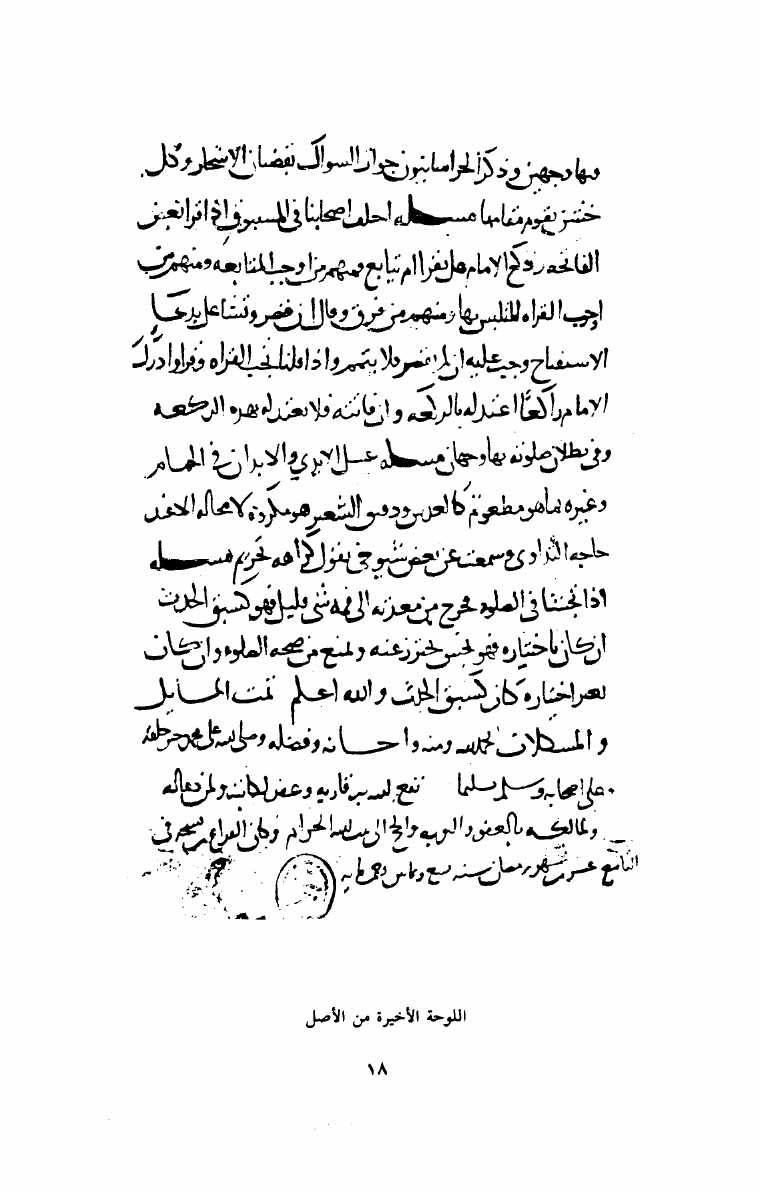 فيها وجهين وذكر الخراسانيون جواز السواك بقضبان الاشجار وكل
خشن يقوم مقامها مسله احلف اصحابنا في المسبوق اذا قرا بعض
الفاتحه وركع الامام هل يقرا ام يتابع فمنهم من اوجب المتابعه ومنهم من
اوجب القراه لتلبس بها ومنهم من فرق وقال ان قصر وتشاغل بدعا
الاستفتاح وجب عليه ان لم يقصر فلا يتمم واذا قلنا تجب القراه فقرا وادرك
الامام راكعا اعتد له بالركعه وان فاتته فلا يعتد له بهذه الركعه
وفي بطلان صلوته بها وجهان مسله غسل الايدي والابدان في الحمام
وغيره بما هو مطعوم كالعدس ودقيق الشعير هو مكروه لا محاله الا عند
حاجه التداوي وسمعت عن بعض شيوخي يقول كراهه تحريم مسله
اذا تجشا في الصلوه فخرج من معدته الى فمه شي قليل فهو كسبق الحدث
ان كان باختياره فهو نجس يحترز عنه ويمنع من صحه الصلوه وان كان
بغير اختياره كان كسبق الحدث والله اعلم تمت المسايل
والمشكلات بحمد الله ومنه واحسانه وفضله وصلى الله على محمد خير خلقه
على اصحابه وسلم تسليما نفع الله به قاريه وغفر لكاتبه ولمن دعا له
ولمالكه بالعفو والتوبه والحج الى بيت الله الحرام وكان الفراغ من نسخه في
التاسع عشر من شهر رمضان سنه
اللوحة الأخيرة من الأصل
١٨